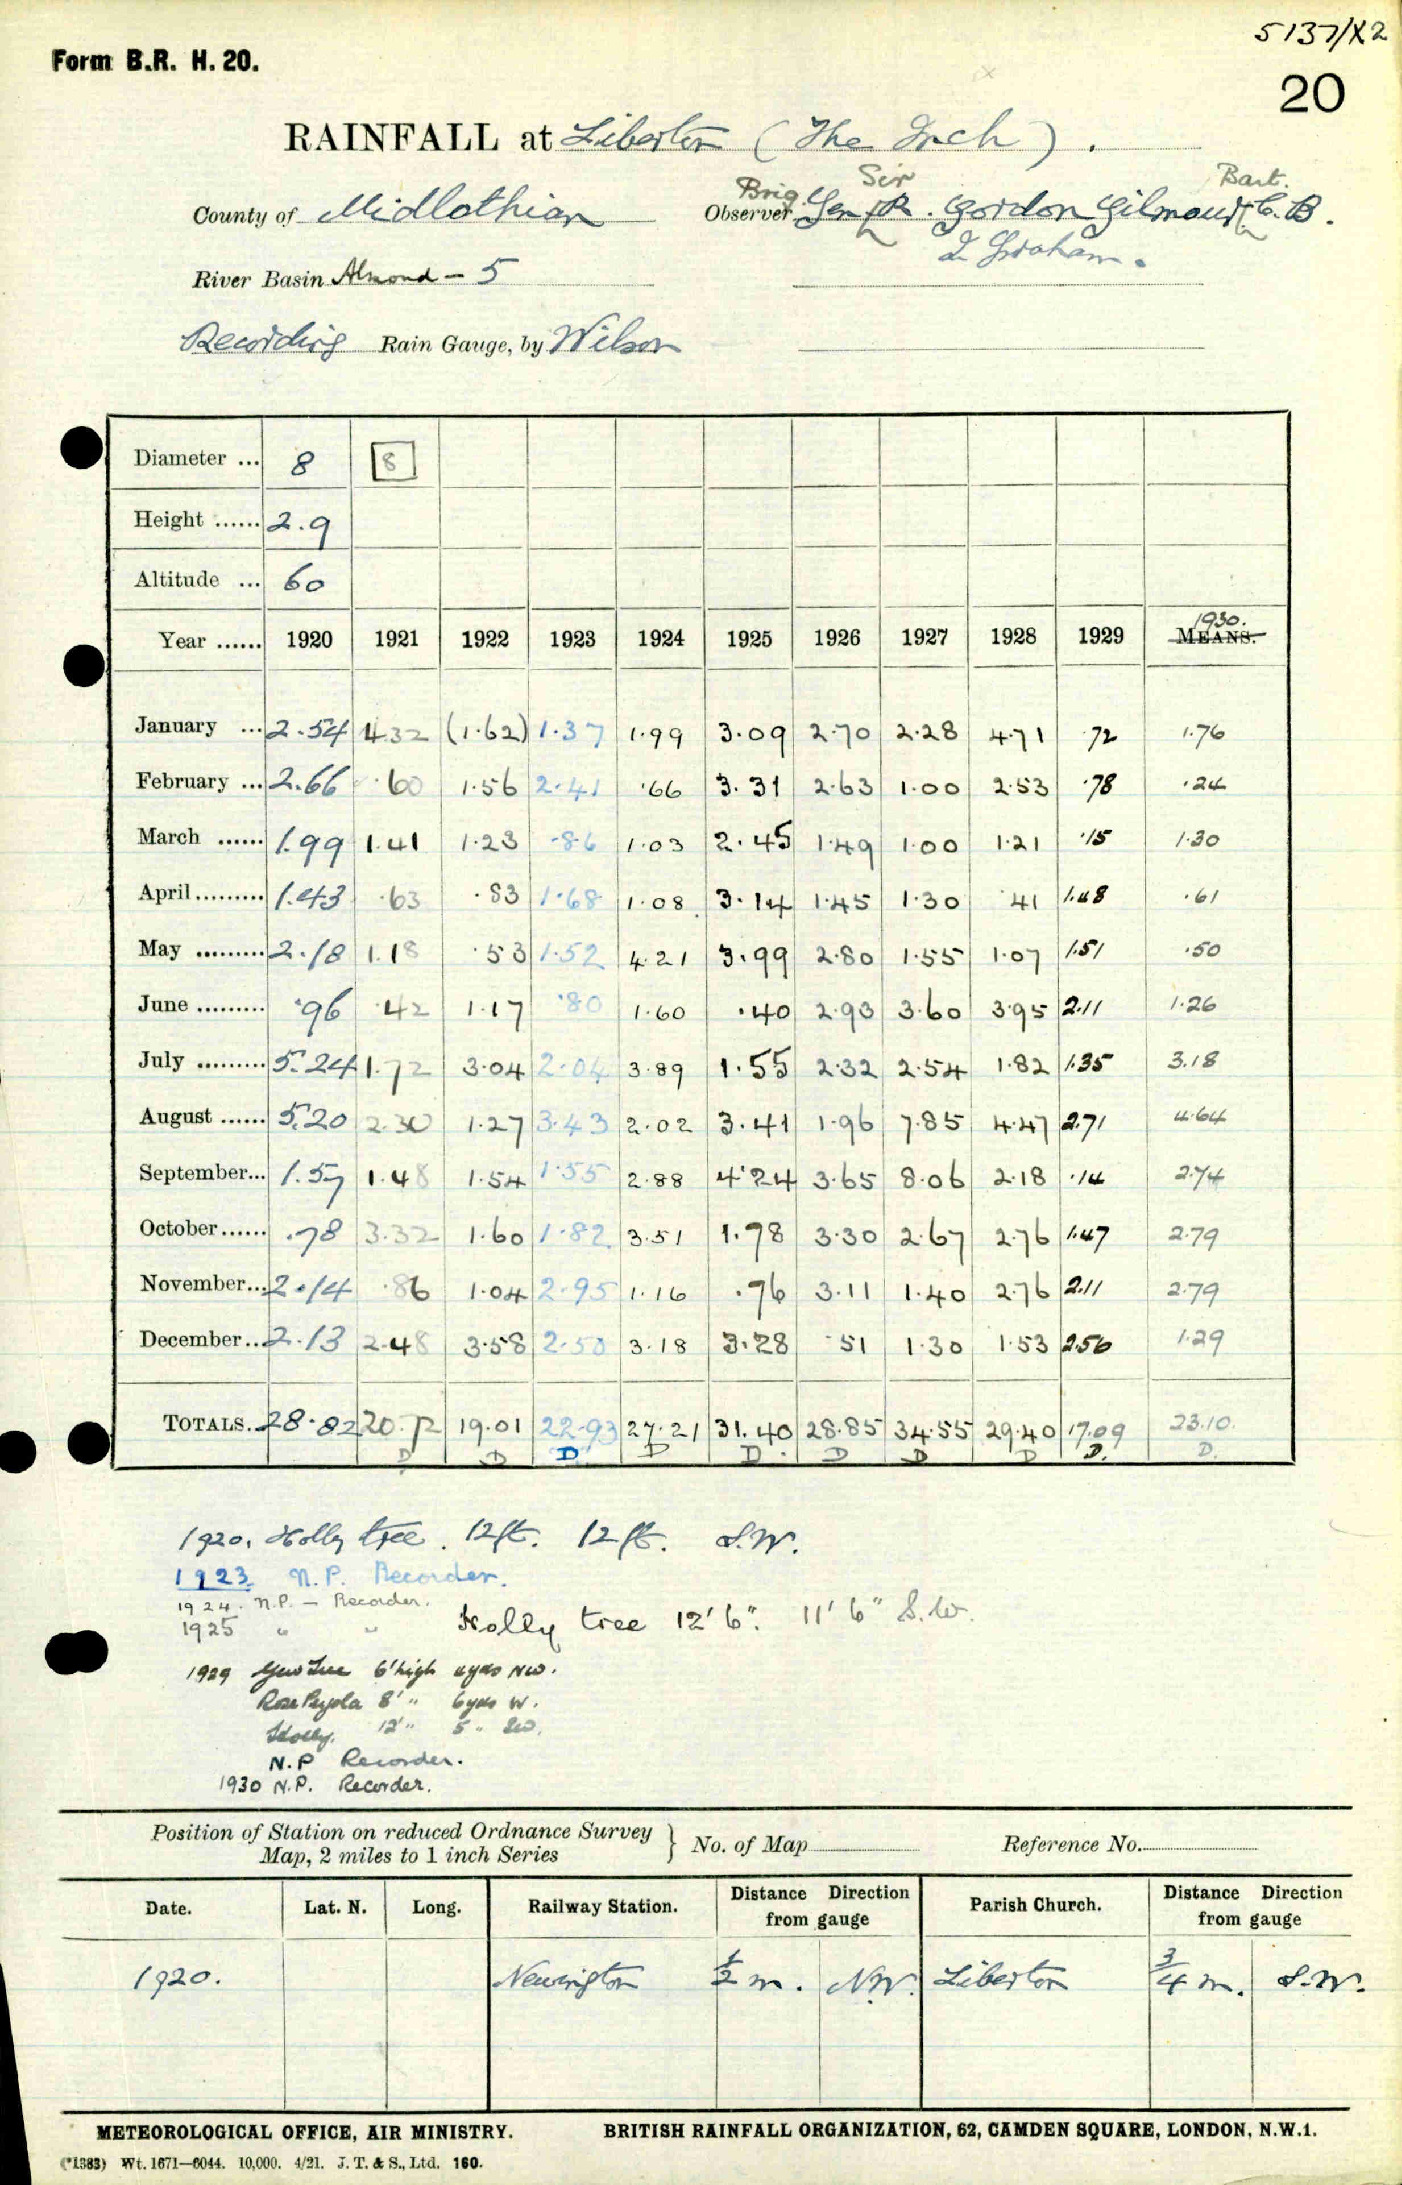 5137/X2
Form B.R. H. 20.
20
RAINFALL at Liberton (The Inch).
Brig. Sir Bart.
County of Midlothian Observer Gen R. Gordon Gilmour C.B.
J. Graham.
River Basin Almond - 5
Recording Rain Gauge, by Wilson
Diameter ... 8 8
Height ...... 2.9
Altitude ... 60
1930.
Year ...... 1920 1921 1922 1923 1924 1925 1926 1927 1928 1929 MEANS.
January ... 2.54 4.32 (1.62) 1.37 1.99 3.09 2.70 2.28 4.71 .72 1.76
February ... 2.66 .60 1.56 2.41 .66 3.31 2.63 1.00 2.53 .78 .24
March ...... 1.99 1.41 1.23 .86 1.03 2.45 1.49 1.00 1.21 .15 1.30
April ......... 1.43 .63 .83 1.68 1.08 3.14 1.45 1.30 .41 1.48 .61
May ......... 2.18 1.18 .53 1.52 4.21 3.99 2.80 1.55 1.07 1.51 .50
June ......... .96 .42 1.17 .80 1.60 .40 2.93 3.60 3.95 2.11 1.26
July ......... 5.24 1.72 3.04 2.04 3.89 1.55 2.32 2.54 1.82 1.35 3.18
August ...... 5.20 2.30 1.27 3.43 2.02 3.41 1.96 7.85 4.47 2.71 4.64
September... 1.57 1.48 1.54 1.55 2.88 4.24 3.65 8.06 2.18 .14 2.74
October...... .78 3.32 1.60 1.82 3.51 1.78 3.30 2.67 2.76 1.47 2.79
November... 2.14 .86 1.04 2.95 1.16 .76 3.11 1.40 2.76 2.11 2.79
December... 2.13 2.48 3.58 2.50 3.18 3.28 .51 1.30 1.53 2.56 1.29
TOTALS... 28.82 20.72 19.01 22.93 27.21 31.40 28.85 34.55 29.40 17.09 23.10.
D D D D D D D D D. D.
1920. Holly tree. 12ft. 12ft. S.W.
1923 N.P. Recorder.
1924. N.P. — Recorder.
1925 " " Holly tree 12' 6". 11' 6" S.W.
1929 Yew Tree 6' high 4yds NW.
Rose Pergola 8' " 6yds W.
Holly. 12' " 5 " SW.
N.P Recorder.
1930 N.P. Recorder.
Position of Station on reduced Ordnance Survey
Map, 2 miles to 1 inch Series } No. of Map Reference No.
Date. Lat. N. Long. Railway Station. Distance Direction from gauge Parish Church. Distance Direction from gauge
1920. Newington 1/2 m. N.W. Liberton 3/4 m. S.W.
METEOROLOGICAL OFFICE, AIR MINISTRY. BRITISH RAINFALL ORGANIZATION, 62, CAMDEN SQUARE, LONDON, N.W.1.
(*1383) Wt. 1671—6044. 10,000. 4/21. J. T. & S., Ltd. 160.